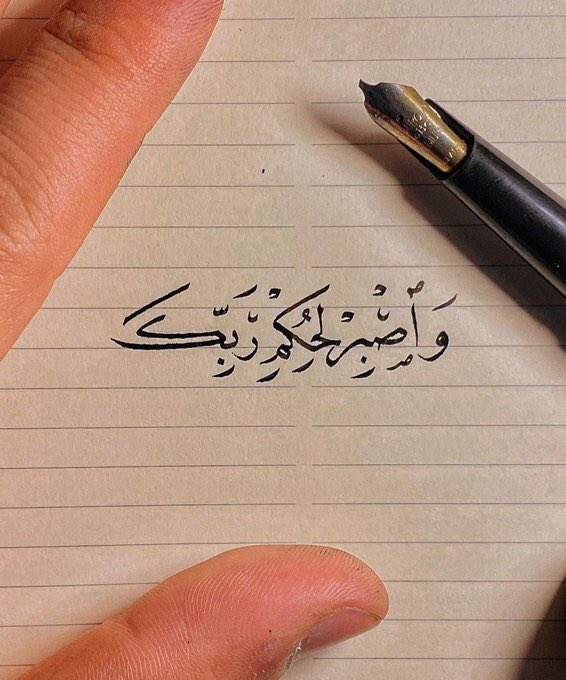 وَٱصْبِرْ لِحُكْمِ رَبِّكَ